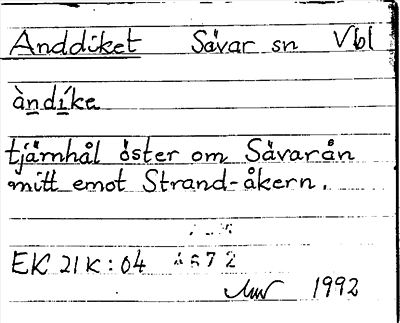 Anddiket Sävar sn Vbl
àndíka
tjärnhål öster om Sävarån
mitt emot Strand-åkern.
EK 21K:04 4672
1992